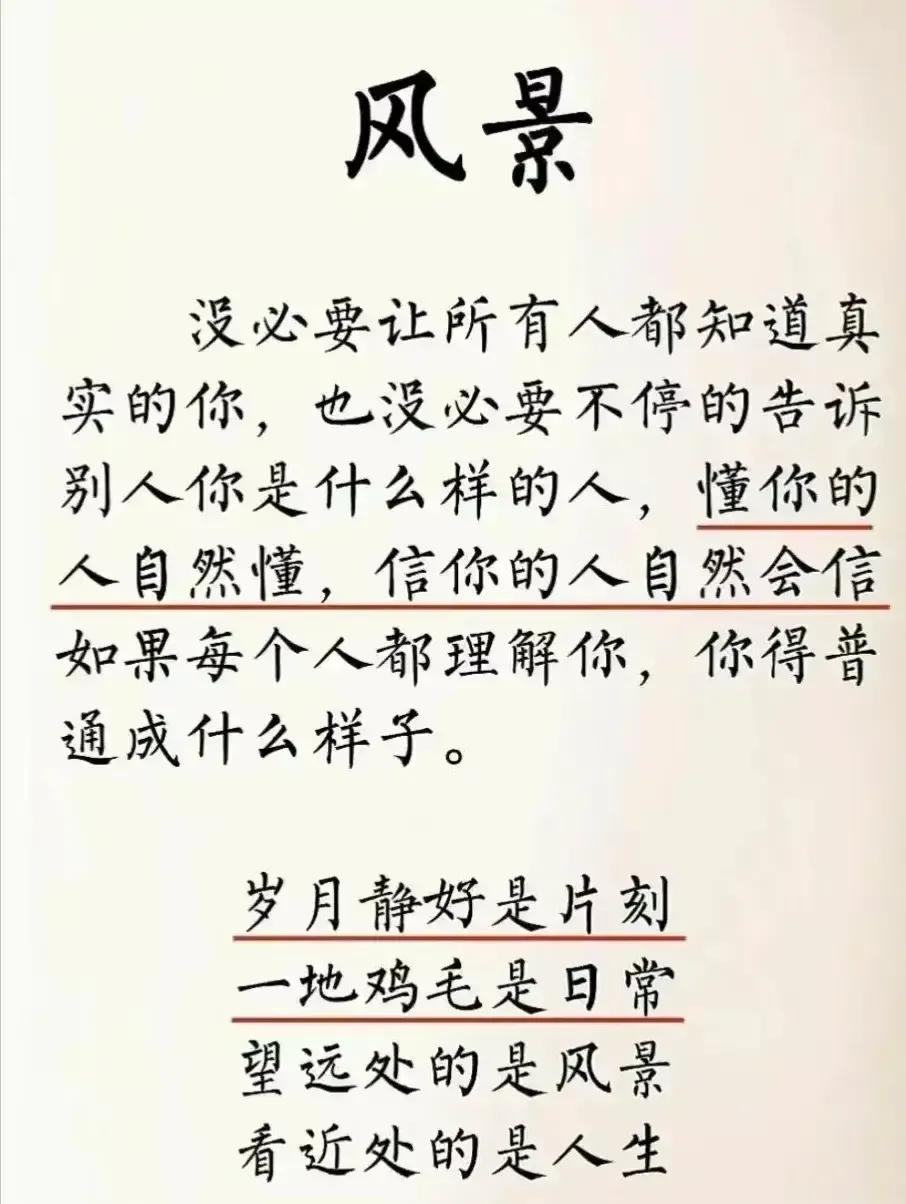 风景
没必要让所有人都知道真
实的你，也没必要不停的告诉
别人你是什么样的人，懂你的
人自然懂，信你的人自然会信
如果每个人都理解你，你得普
通成什么样子。
岁月静好是片刻
一地鸡毛是日常
望远处的是风景
看近处的是人生